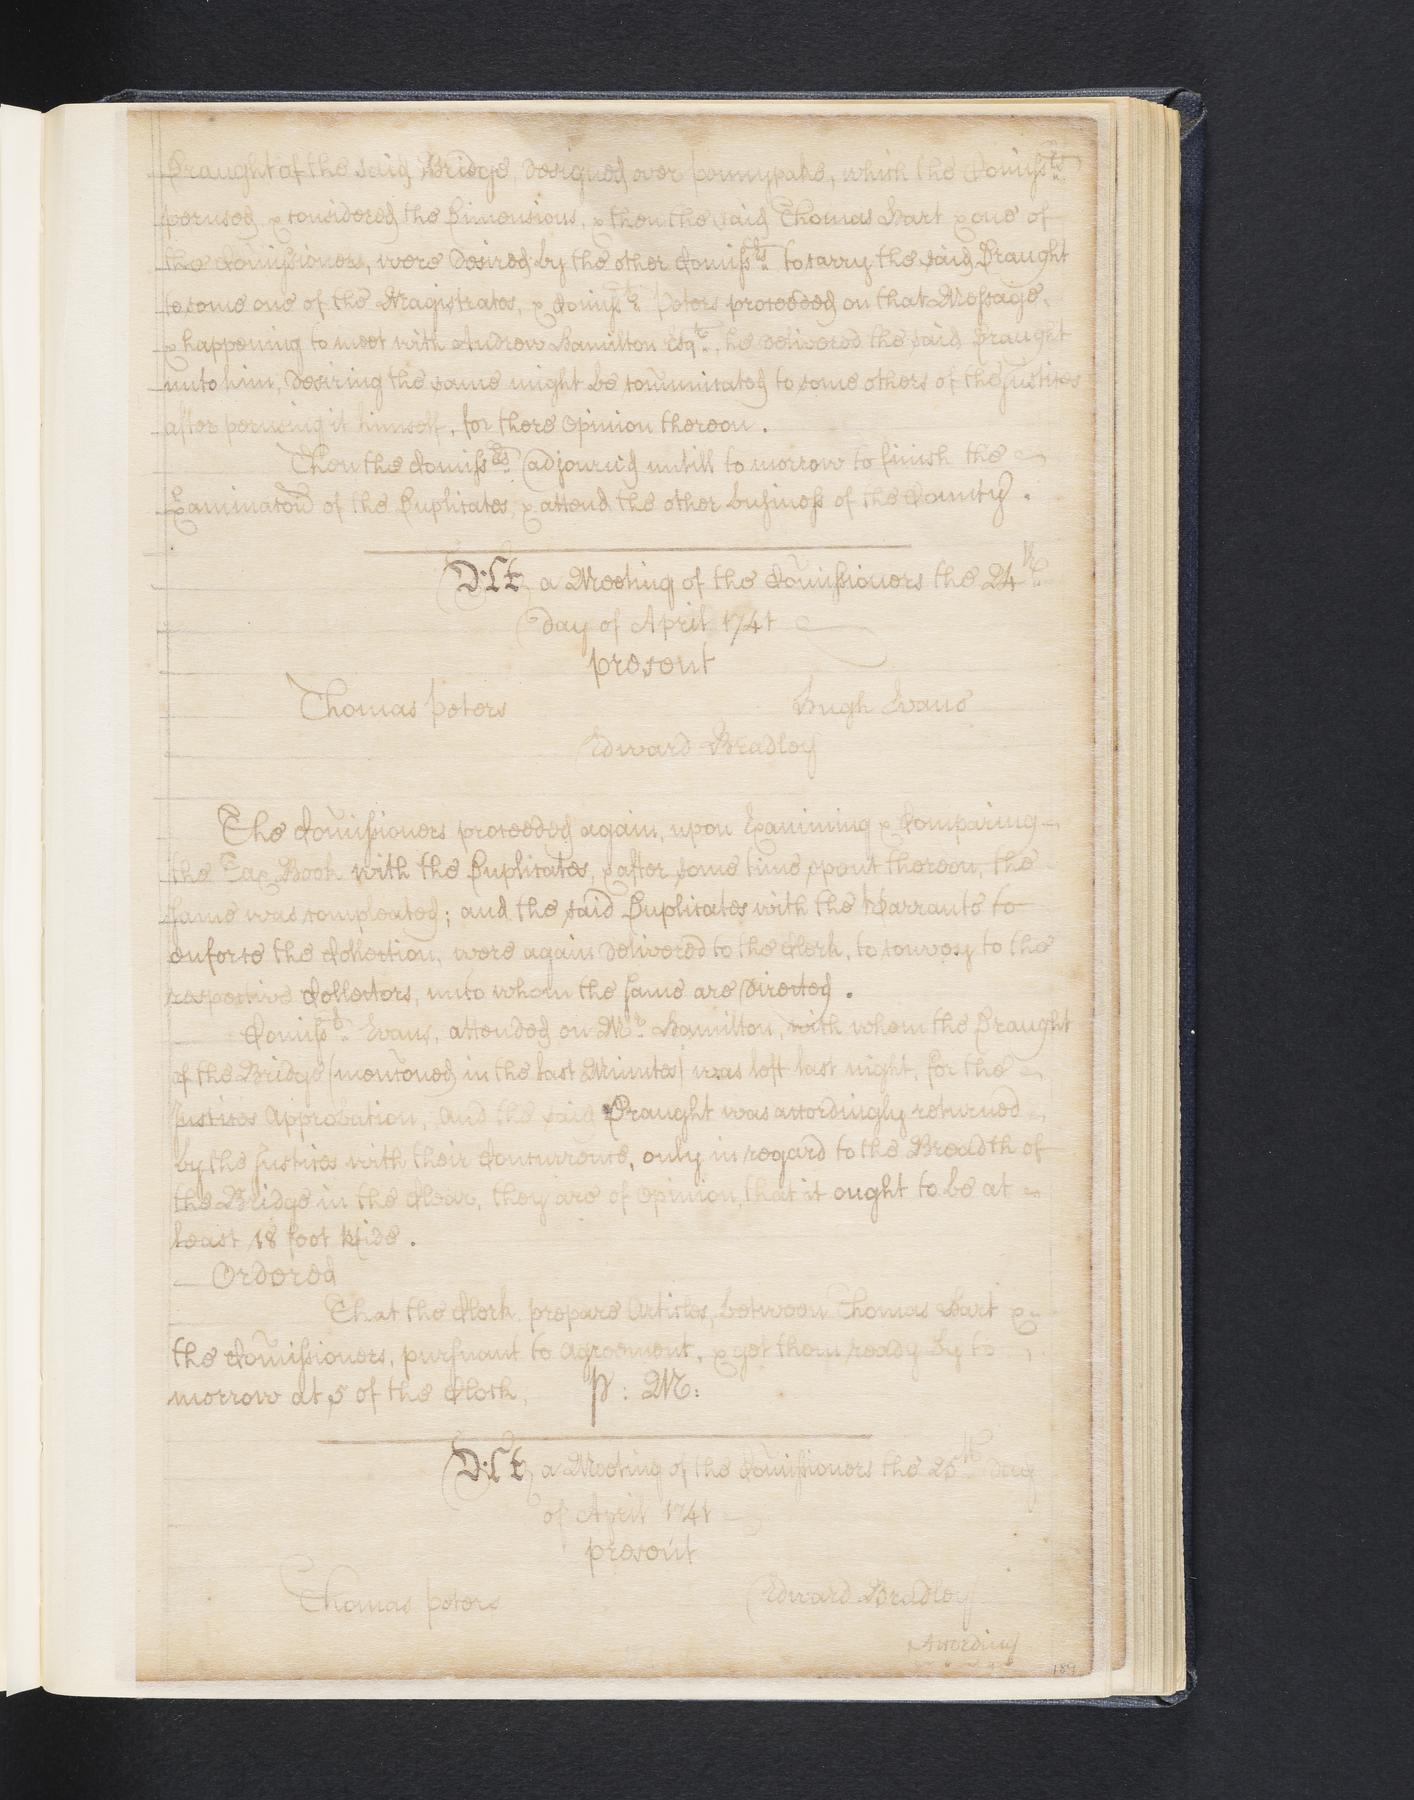 Draught of the said Bridge, designed over pennypake, which the Comiss.rs
perused, & considered the Dimensions, & then the said Thomas Hart & one of
the Comissioners, were desired by the other Comiss.rs to carry the said Draught
to some one of the Magistrates, & Comiss.r Peters proceeded on that Message,
& happening to meet with Andrew Hamilton Esq.r, he delivered the said Draught
unto him, desiring the same might be comunicated to some others of the Justices
after perusing it himself, for there opinion thereon.
Then the Comiss.rs adjourn'd untill to morrow to finish the
Examinacon of the Duplicates, & attend the other business of the County.
At a Meeting of the Comissioners the 24th
day of April 1741
present
Thomas Peters Hugh Evans
Edward Bradley
The Comissioners proceeded again, upon Examining & Comparing
the Tax Book with the Duplicates, & after some time spent thereon, the
same was compleated; and the said Duplicates with the Warrants to
enforce the Collection, were again delivered to the Clerk, to convey to the
respective Collectors, unto whom the same are directed.
Comiss.r Evans, attended on M.r Hamilton, with whom the Draught
of the Bridge (mentoned in the last Minutes) was left last night, for the
Justices Approbation, and the said Draught was accordingly returned
by the Justices with their Concurrence, only in regard to the Breadth of
the Bridge in the Clear, they are of opinion, that it ought to be at
least 18 foot Wide.
Ordered
That the Clerk prepare Articles, between Thomas Hart &
the Comissioners, pursuant to agreement, & get them ready by to
morrow at 5 of the Clock, P: M:
At a Meeting of the Comissioners the 25th day
of April 1741
present
Thomas Peters Edward Bradley
According